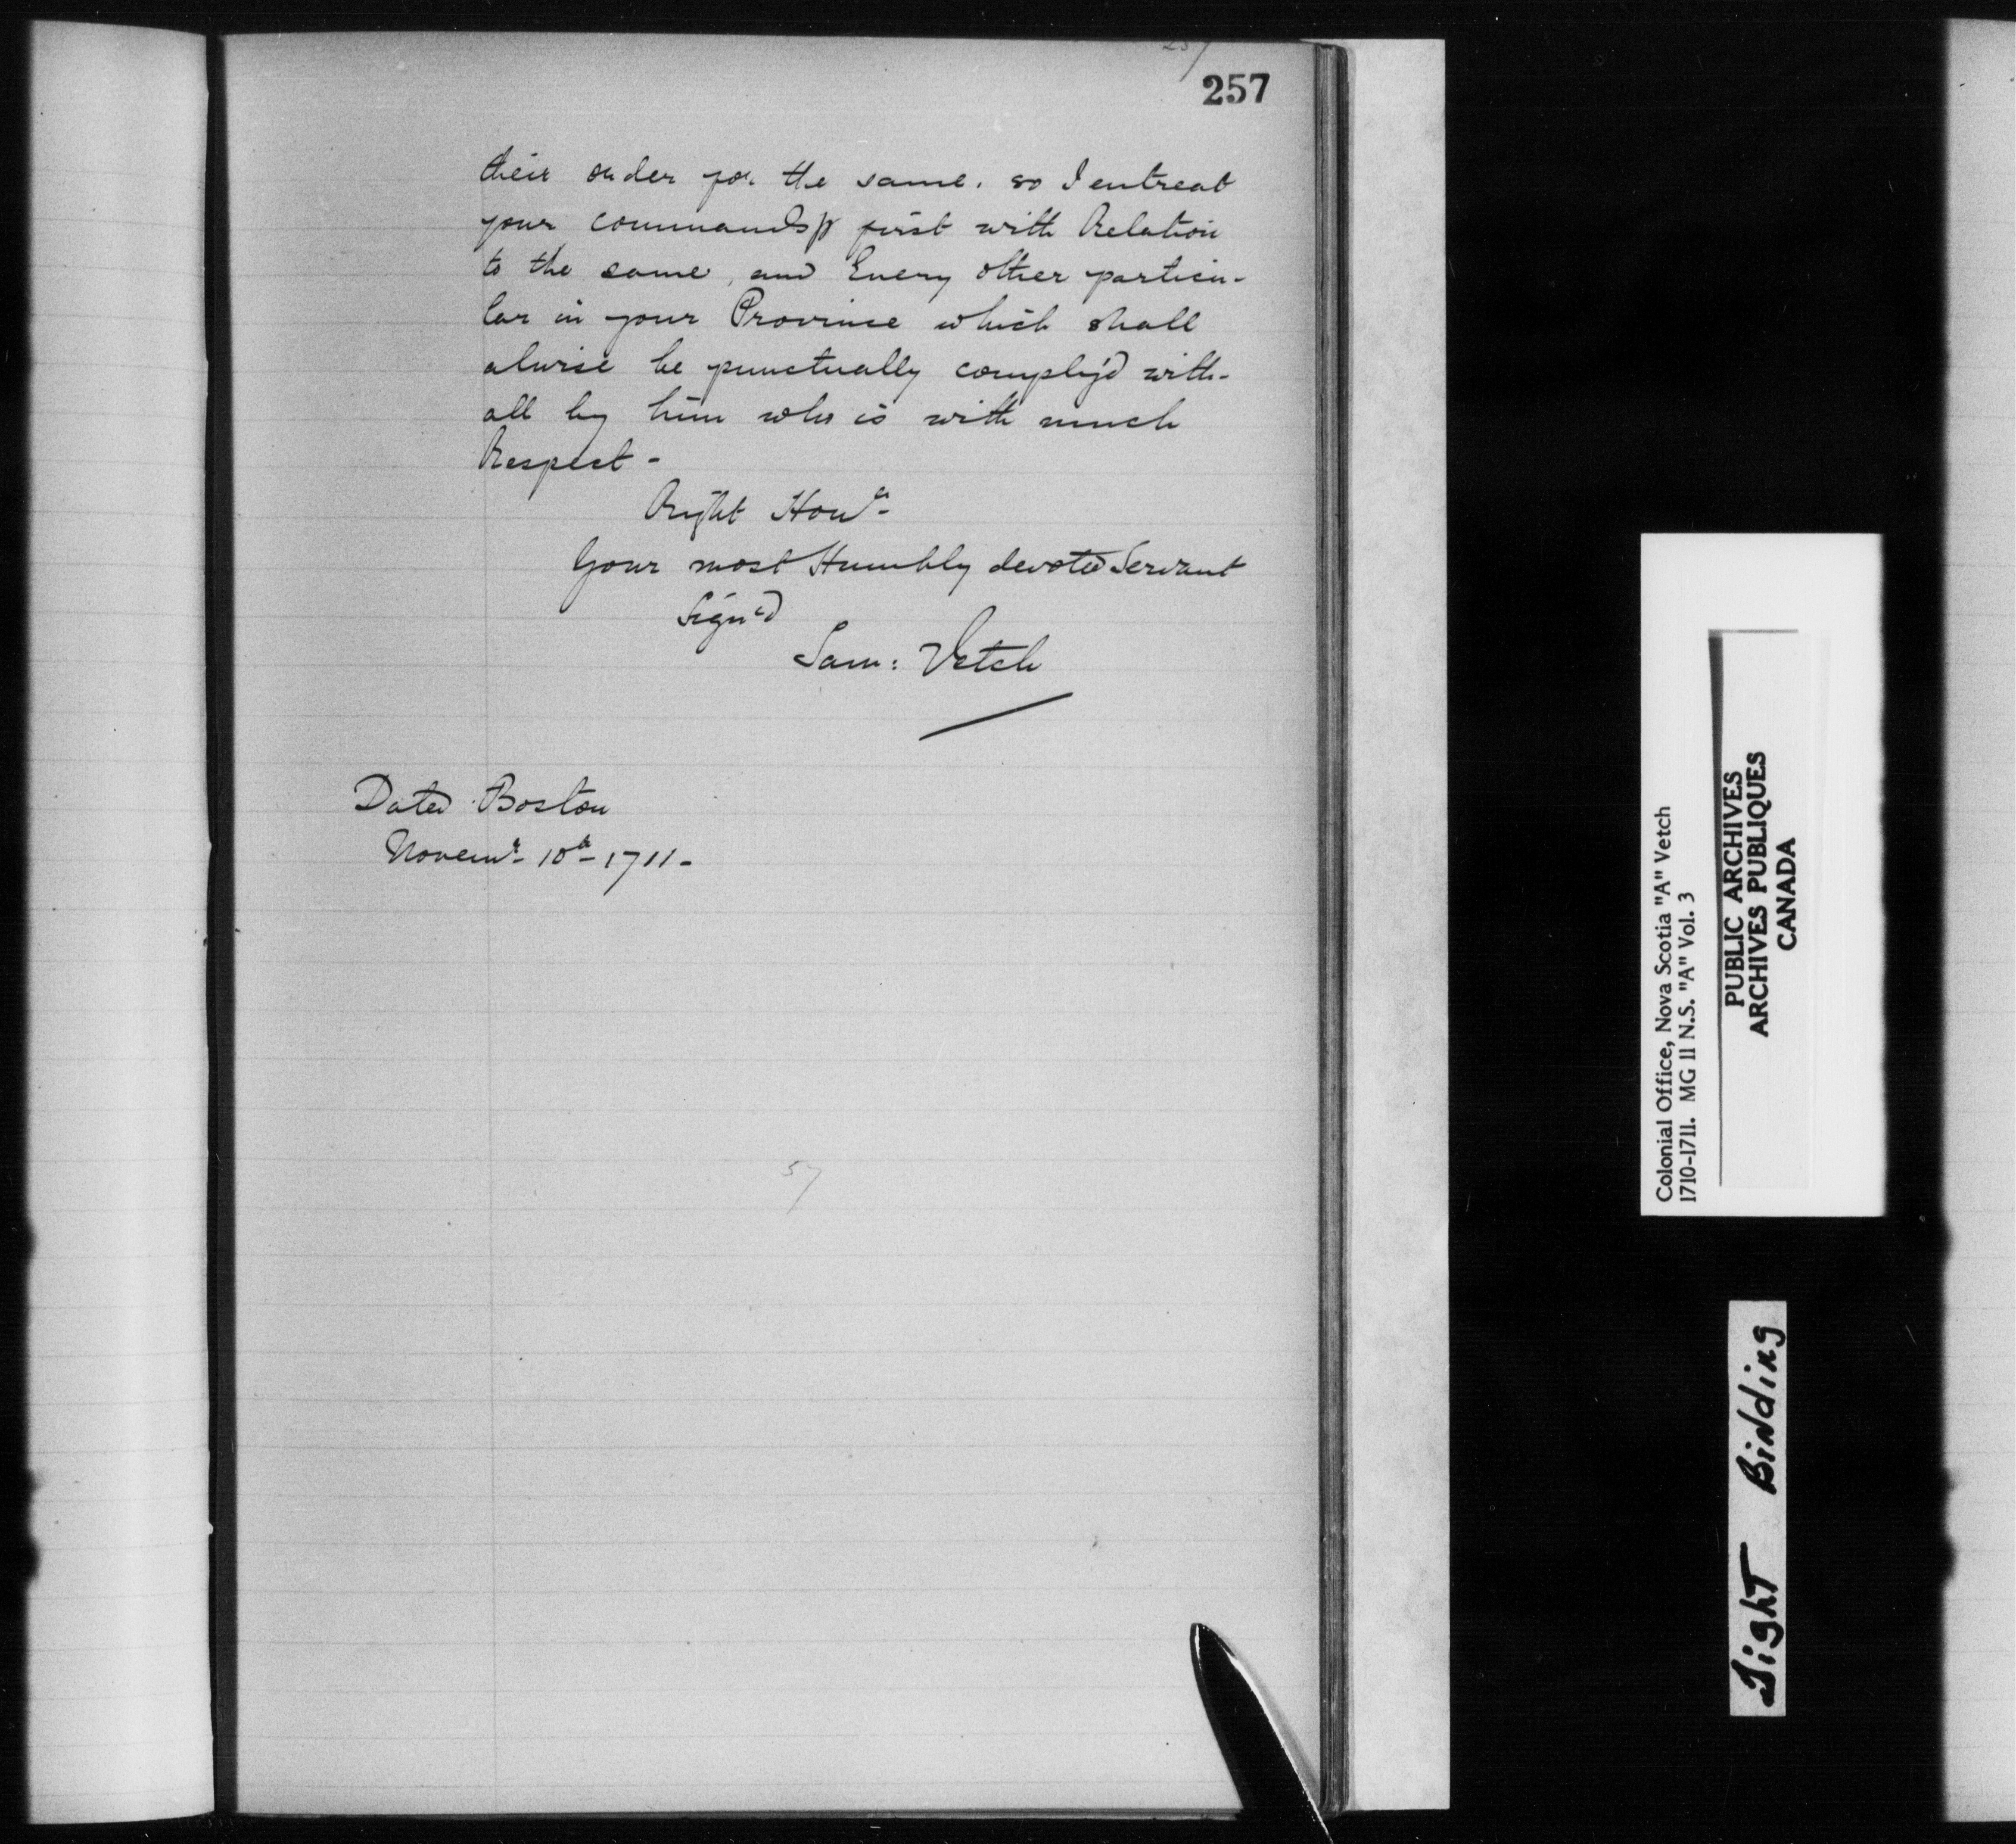 257
257
their order for the same. so I entreat
your commands p first with Relation
to the same, and Every other particu-
lar in your Province which shall
alwise be punctually comply'd with-
all by him who is with much
Respect -
Right Hon
Your most Humbly devoted Servant
Sign'd
Sam: Vetch
Dated Boston
Novemr 10th 1711-
57
Colonial Office, Nova Scotia "A" Vetch
1710-1711. MG 11 N.S. "A" Vol. 3
PUBLIC ARCHIVES
ARCHIVES PUBLIQUES
CANADA
Tight Binding